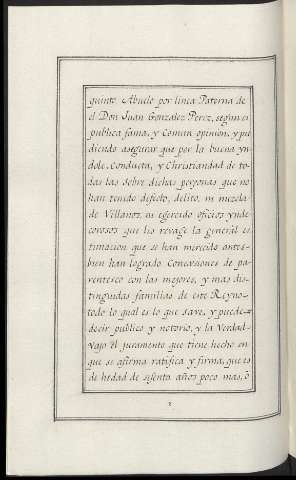 quinto Abuelo por linea Paterna de
el Don Juan Gonzalez Perez, segun es
publica fama, y Comun opinion, y pu
diendo asegurar que por la buena yn
dole Conducta, y Christiandad de to-
das las sobre dichas personas que no
han tenido defecto, delito, ni mezcla
de Villanos, ni egercido oficios ynde
corosos que les revage la general es
timacion que se han merecido antes
bien han logrado Conexsiones de pa-
rentesco con las mejores, y mas dis-
tinguidas familias de este Reyno-
todo lo qual es lo que save, y puede
decir publico y notorio, y la Verdad-
vajo el juramento que tiene hecho en
que se afirma ratifica y firma, que es
de hedad de sesenta años poco mas, ó